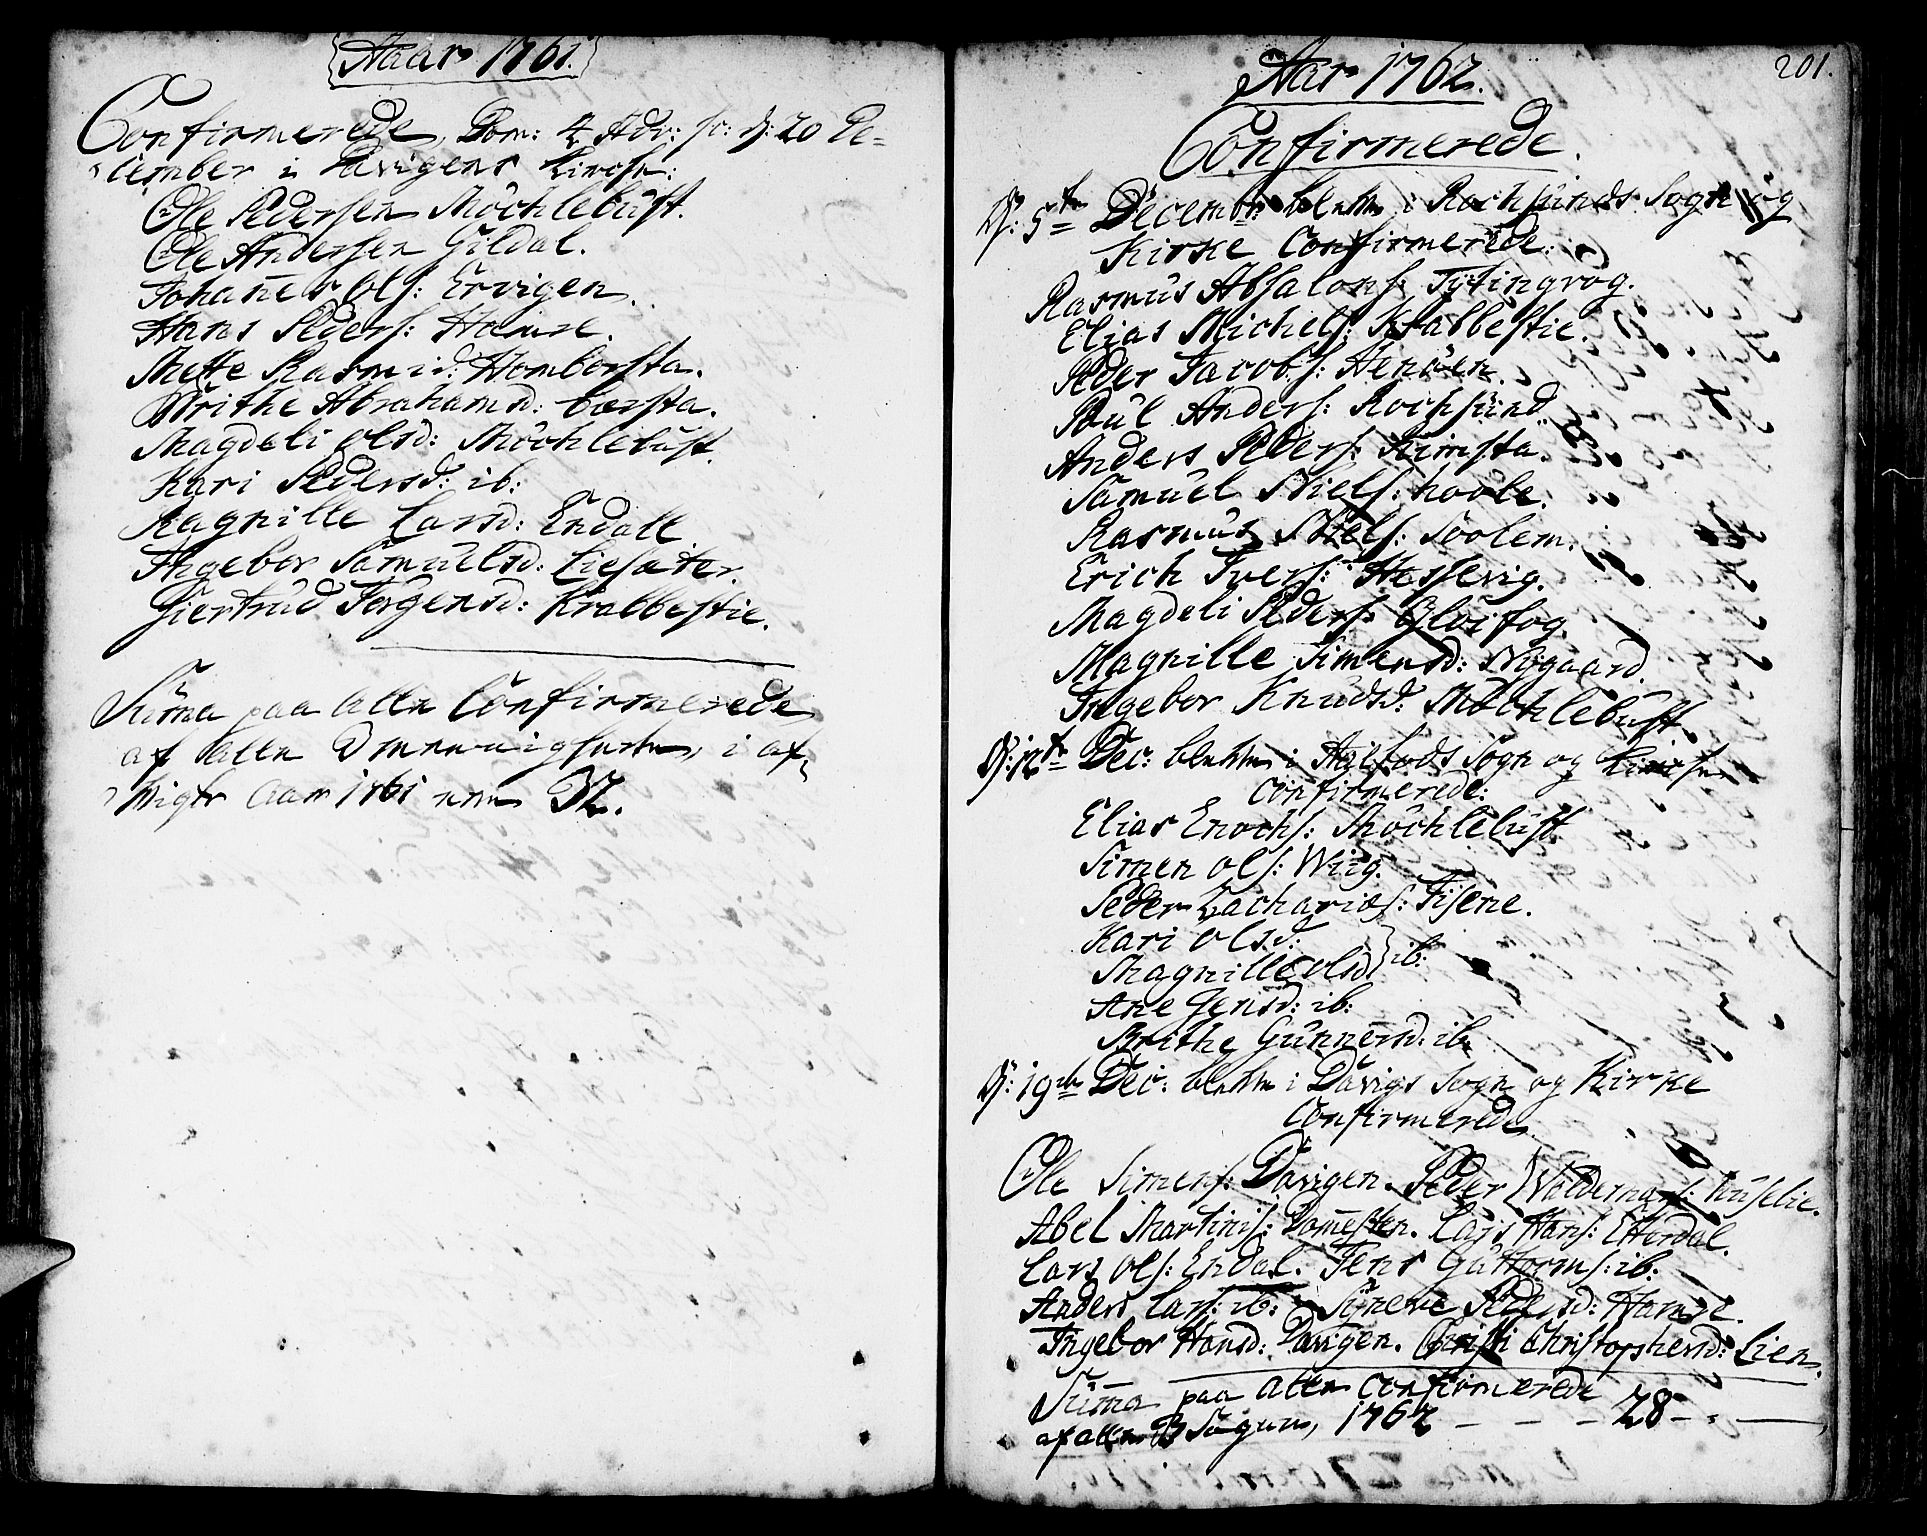 Aaar 1761.
Confirmerede, Dom: 4 Adv: sc: d: 20 De=
cember i Davigens Kirche:
Ole Pedersen Möchlebust.
Ole Andersen Gildal.
Johañes Ols: Ervigen.
Hans Peders: Hamre.
Mette Rasmid: Homborsta.
Brithe Abrahamsd: børsta.
Magdeli Olsd: Möchlebust.
Kari Pedersd: ib:
Ragnille Larsd: Endall
Ingebor Samuelsd: Liesæter.
Giertrud Jørgensd: Krabbestie.
Suma paa alle Confirmerede
af alle i af=
vigte Aar 1761 32.
201.
Aar 1762.
Confirmerede.
D: 5te Decembr blefve i Rochsunds Sogn og
Kirke Confirmerede:
Rasmus Absalons: Tytingvog.
Elias Michels: Krabbestie.
Peder Jacobs: Henöen.
Poul Anders: Rochsund.
Anders Peders: Rimsta.
Samuel Niels: hoole.
Rasmus Niels: Soolem.
Erich Ivers: Hessevig.
Magdeli Peders: Gloifog.
Magnille Simensd: Nygaard.
Ingebor Knudsd: Möchlebust.
D: 12te Dec: blefve i Aalfods Sogn og Kirche
Confirmerede:
Elias Enochs: Möchlebust
Simen Ols: Wiig.
Peder Zacharias: Tisene.
Kari Olsd:
Magnille Olsd: } ib:
Ane Jensd: ib:
Brithe Gunnersd: ib:
D: 19de Dec: blefve i Davigs Sogn og Kirke
Confirmerede
Ole Simens: Davigen. Peder Woldemars: Huselie.
Abel Martinis: Domesten. Lars Hans: Etterdal.
Lars Ols: Endal. Jens Guttorms: ib:
Anders Lars: ib: Synneve Pedersd: Hamre.
Ingebor Hansd: Davigen. Christi Christophersd: Lien.
Suma paa alle Confirmerede
af alle 3 Sogne, 1762 - - - 28 - . -